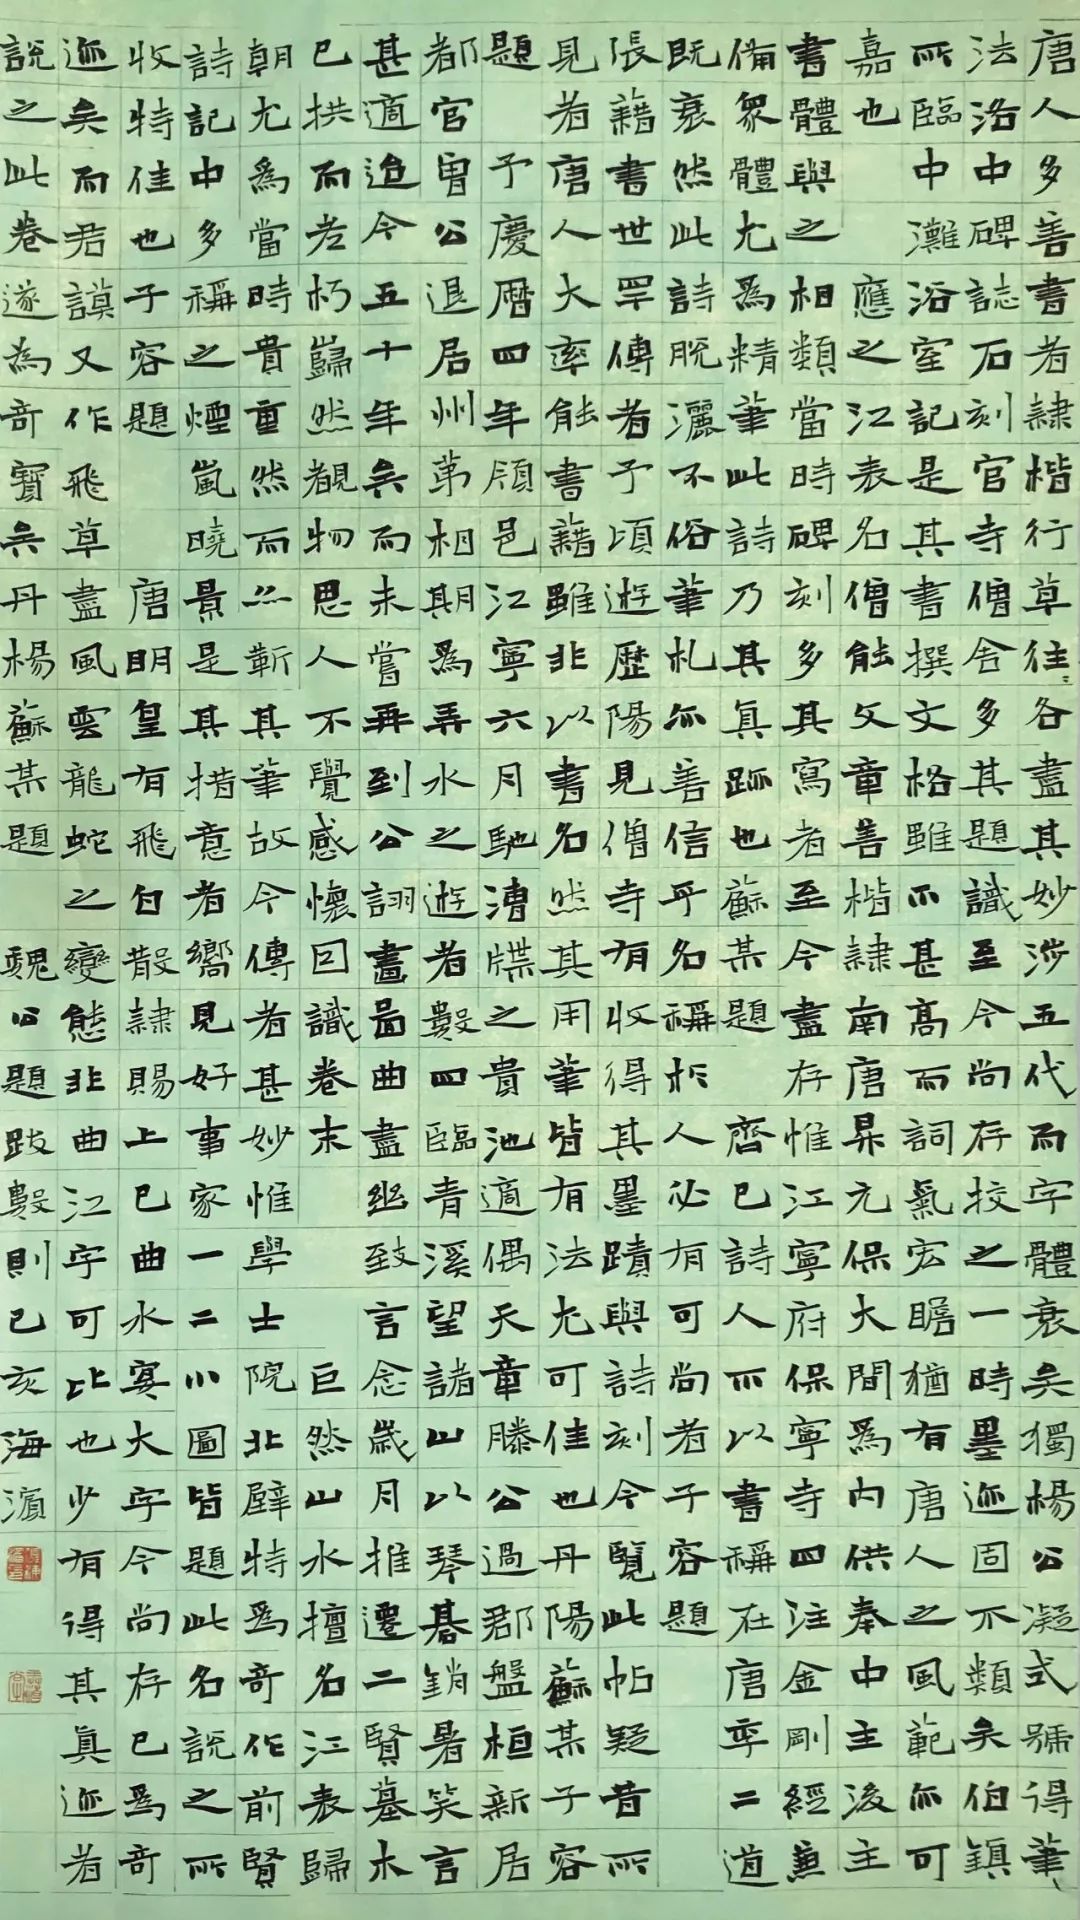 唐人多善書者隸楷行草往往各盡其妙涉五代而字體衰矣獨楊公凝式號得筆
法洛中碑誌石刻官寺僧舍多其題識至今尚存挍之一時墨迹固不類矣伯鎮
所臨中灘浴室記是其書撰文格雖不甚高而詞氣宏贍猶有唐人之風範亦可
嘉也 應之江表名僧能文章善楷隸南唐昇元保大間為內供奉中主後主
書體與之相類當時碑刻多其寫者至今盡存惟江寧府保寧寺四注金剛經兼
備眾體尤為精筆此詩乃其真跡也蘇某題 齊已詩人所以書稱在唐季二道
既衰然此詩脫灑不俗筆札亦善信乎名稱於人必有可尚者子容題
張藉書世罕傳者予頃遊歷陽見僧寺有收得其墨蹟與詩刻今覽此帖疑昔所
見者唐人大率能書藉雖非以書名然其用筆皆有法尤可佳也丹陽蘇某子容
題 予慶曆四年領邑江寧六月馳漕牒之貴池適偶天章滕公過郡盤桓新居
都官曾公退居州第相期為弄水之遊者數四臨青溪望諸山以琴碁銷暑笑言
甚適迨今五十年矣而未嘗再到公詡畫啚曲盡幽致言念歲月推遷二賢墓木
已拱而老朽巋然觀物思人不覺感懷回識卷末 巨然山水擅名江表歸
朝尤為當時貴重然而亦靳其筆故今傳者甚妙惟學士院北壁特為奇作前賢
詩記中多稱之煙嵐曉景是其措意者嚮見好事家一二小圖皆題此名說之所
收特佳也子容題 唐明皇有飛白散隸賜上巳曲水宴大字今尚存已為奇
迹矣而君謨又作飛草盡風雲龍蛇之變態非曲江字可比也少有得其真迹者
說之此卷遂為奇寶矣丹楊蘇某題 魏公題跋數則己亥海濱